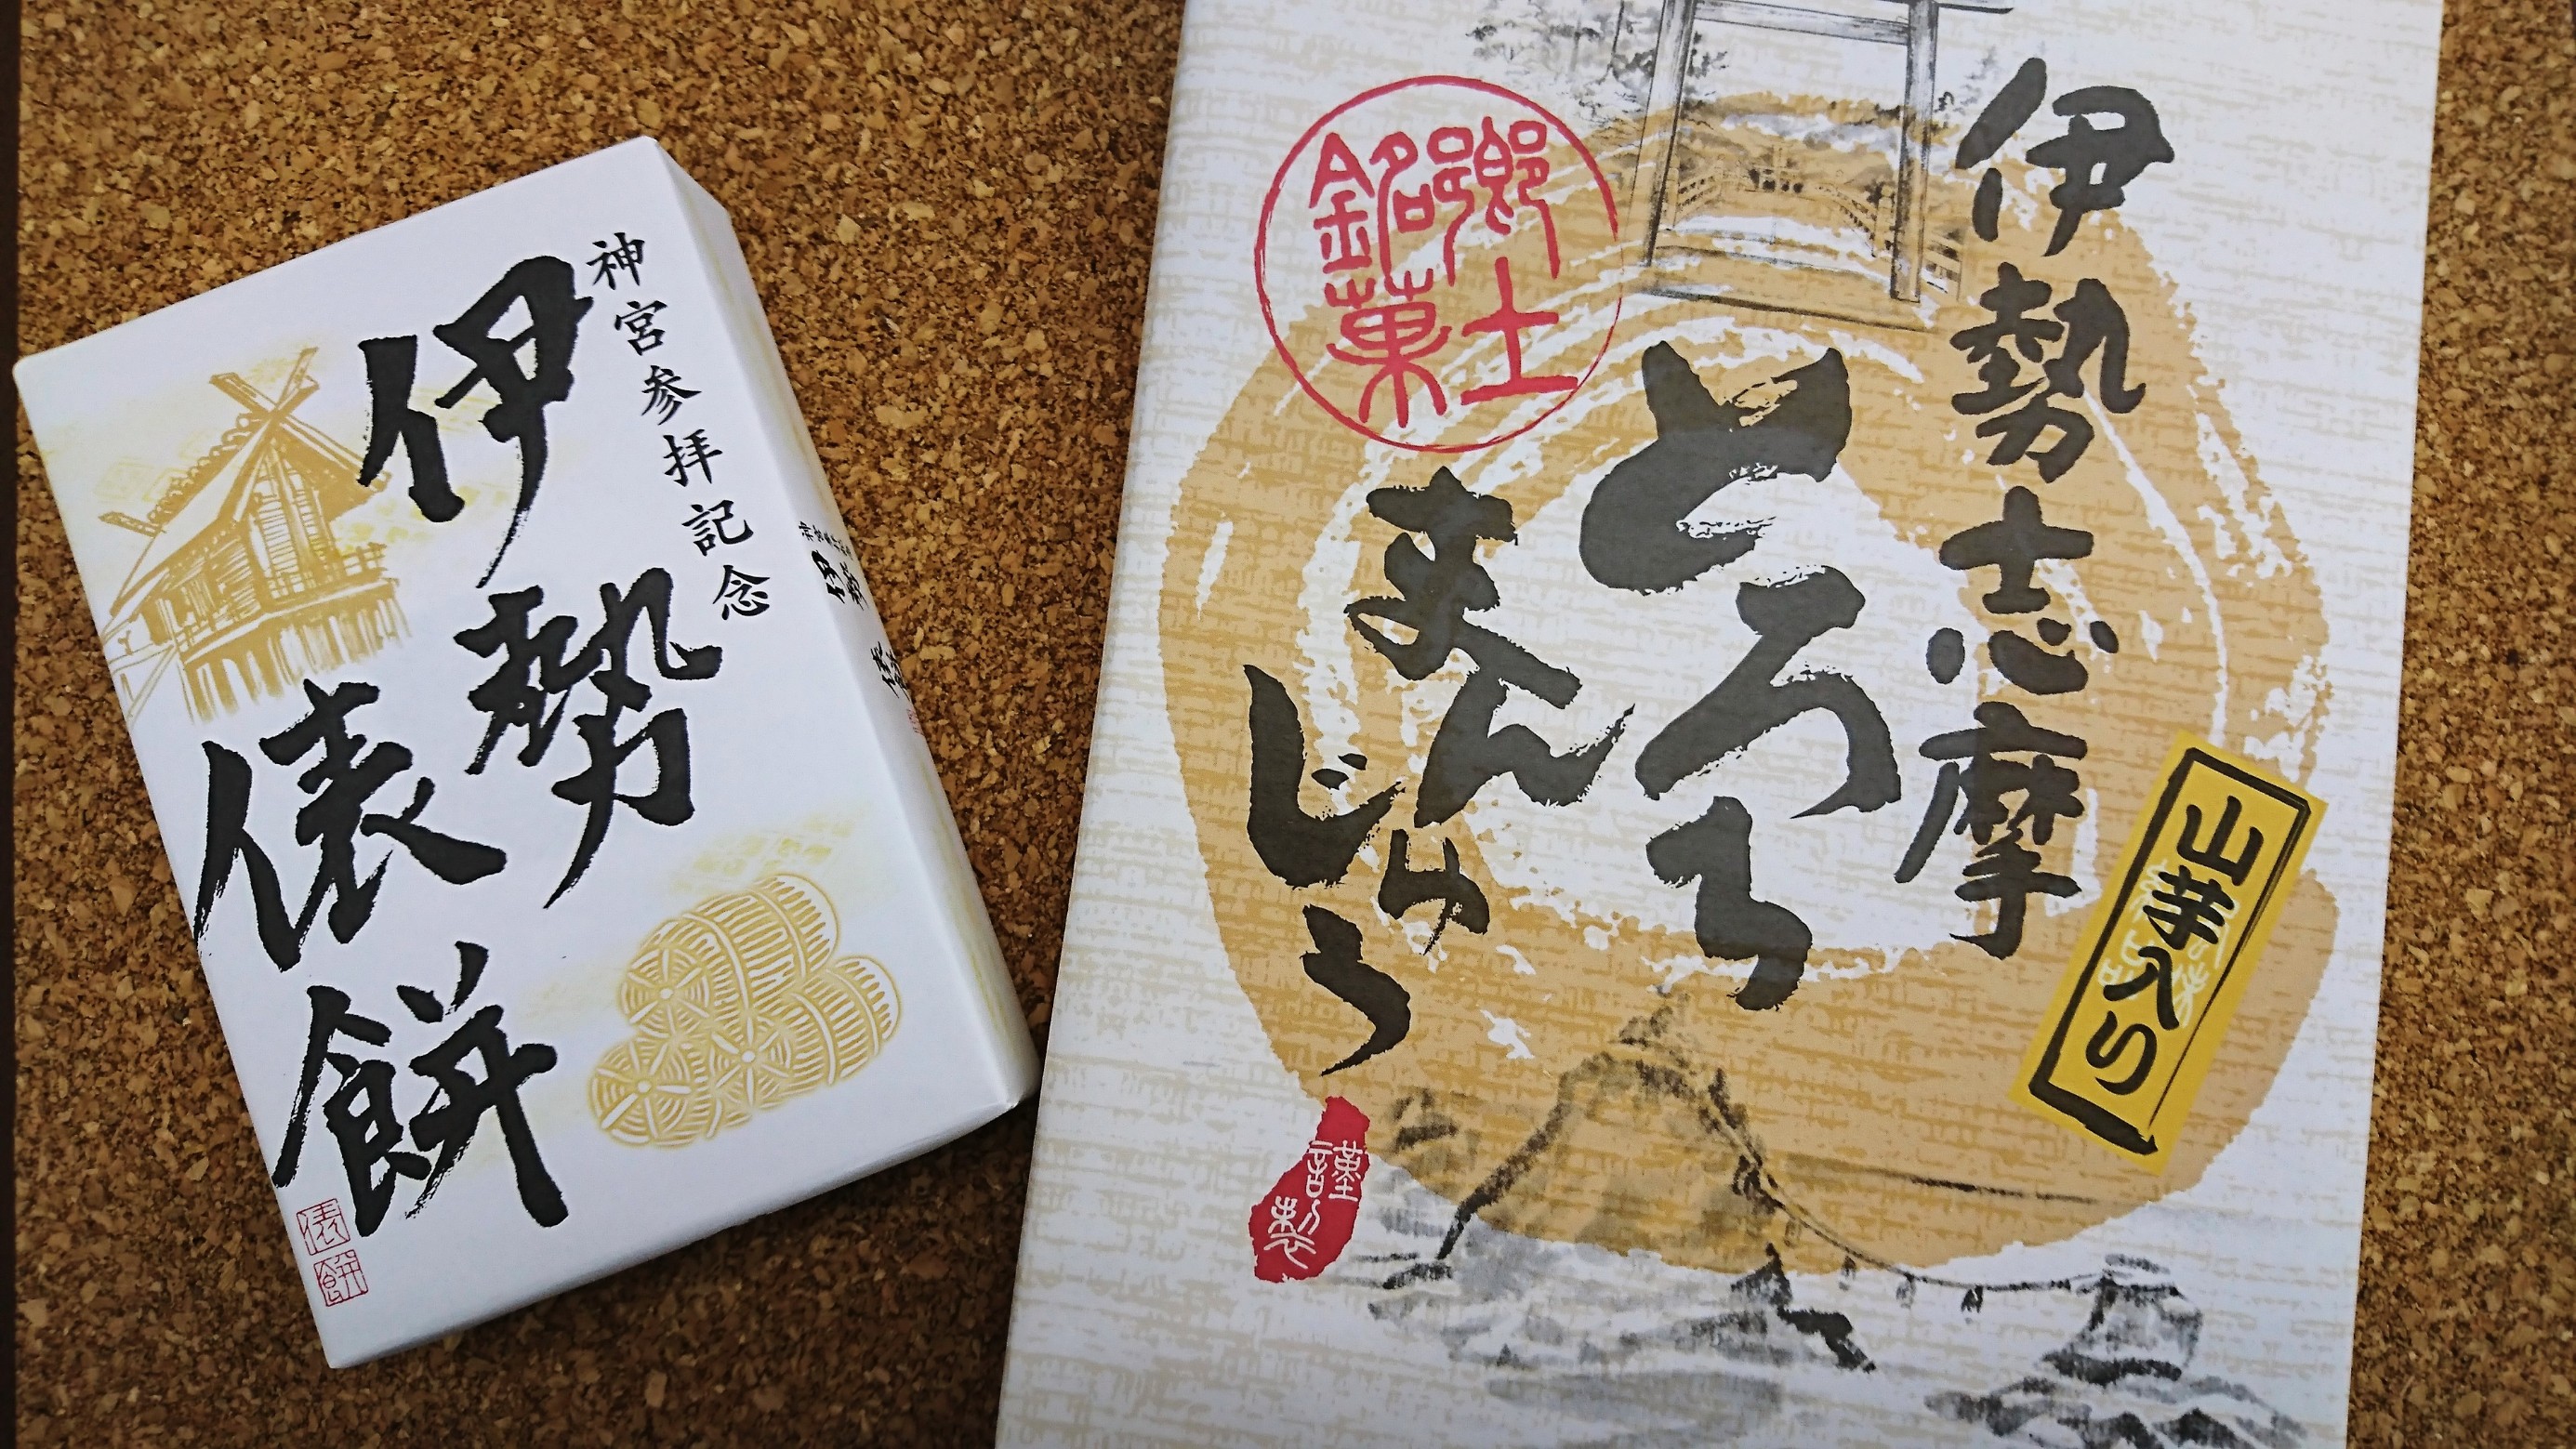 神宮参拝記念
伊勢
俵餅
俵
餅
伊勢志摩
とろろ
まんじゅう
郷土
銘菓
山芋入り
謹
製